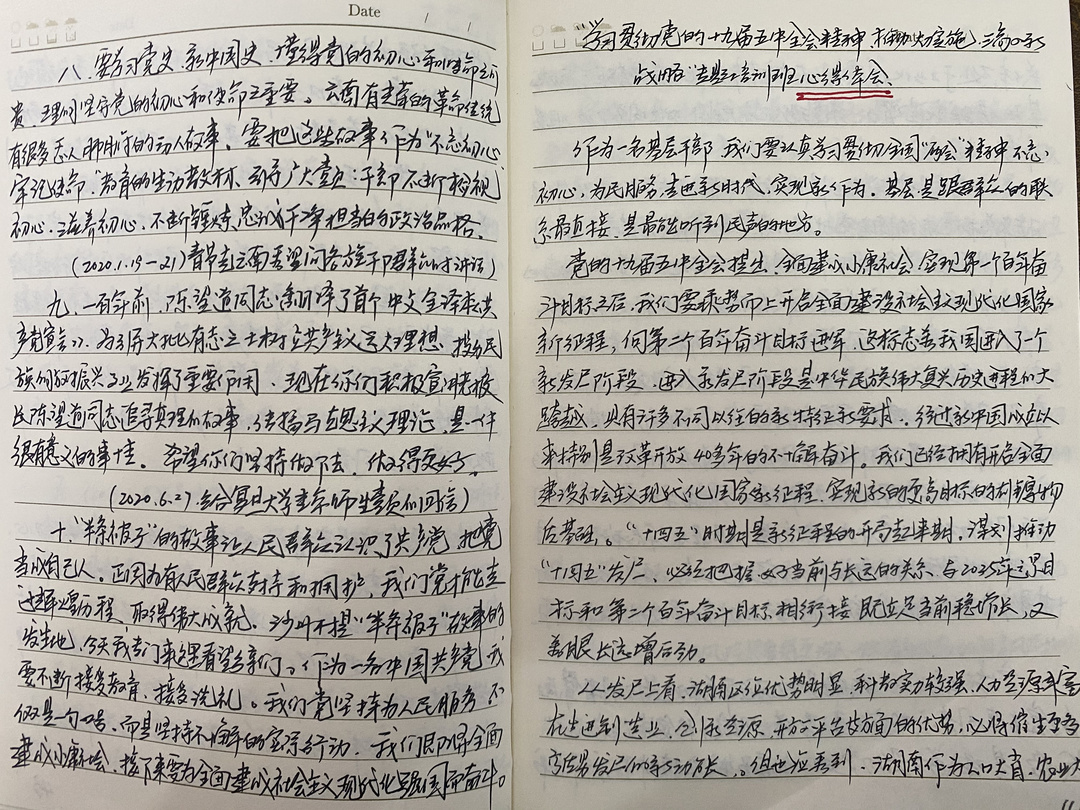 Date
八、要学习党史、新中国史，懂得党的初心和使命之可
贵，理解坚守党的初心和使命之重要。云南有光荣的革命传统
有很多志人肺腑的动人故事。要把这些故事作为"不忘初心
牢记使命"教育的生动教材，引导广大党员干部不断检视
初心、滋养初心，不断锤炼忠诚干净担当的政治品格。
(2020.1.19-21)春节赴云南看望慰问各族干部群众时讲话)
九、一百年前，陈望道同志翻译了首个中文全译本共
产党宣言》，为引导大批有志之士树立共产主义远大理想、投身民
族解放振兴事业发挥了重要作用。现在你们积极宣讲老校
长陈望道同志追寻真理的故事，传播马克思主义理论，是一件
很有意义的事情。希望你们坚持做下去，做得更好。
(2020.6.27给复旦大学青年师生党员的回信)
十、"半条被子"的故事让人民群众认识了共产党，把党
当成自己人。正因为有人民群众支持和拥护，我们党才能走
过辉煌历程，取得伟大成就。沙州不提"半条被子"故事的
发生地，今天我专门来这里看望乡亲们。作为一名中国共产党我
要不断接受教育、接受洗礼。我们党坚持为人民服务不
仅是一句口号，而是坚持不懈的实际行动。我们即将全面
建成小康社会，接下来要为全面建成社会主义现代化强国而奋斗。
"学习贯彻党的十九届五中全会精神，推动实施三高四新
战略"专题培训班心得体会
作为一名基层干部，我们要认真学习贯彻全国"两会"精神不忘
初心，为民服务，走进新时代，实现新作为。基层是跟群众的联
系最直接，是最能听到民声的地方。
党的十九届五中全会提出，全面建成小康社会、实现第一个百年奋
斗目标之后，我们要乘势而上开启全面建设社会主义现代化国家
新征程，向第二个百年奋斗目标进军，这标志着我国进入了一个
新发展阶段。进入新发展阶段是中华民族伟大复兴历史进程的大
跨越，具有许多不同以往的新特征新要求。经过新中国成立以
来特别是改革开放40多年的不懈奋斗。我们已经拥有开启全面
建设社会主义现代化国家新征程，实现新的更高目标的雄厚物
质基础。"十四五"时期是新征程的开局起步期，谋划推动
"十四五"发展，必须把握好当前与长远的关系，与2035年远景目
标和第二个百年奋斗目标相衔接，既立足当前稳增长，又
着眼长远增后劲。
从发展上看，湖南区位优势明显，科教实力较强、人力资源丰富
在先进制造业、创新资源、开放平台等方面的优势，必将催生更多
高质量发展的新动能。但也应看到，湖南作为人口大省、农业大